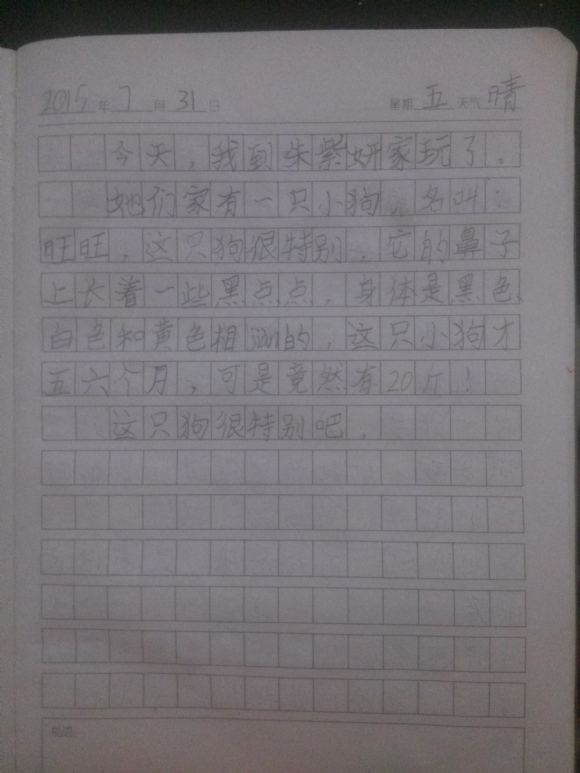 2015年7月31日 星期五 天气晴
今天，我到朱紫妍家玩了。
她们家有一只小狗，名叫：
旺旺，这只狗很特别，它的鼻子
上长着一些黑点点，身体是黑色、
白色和黄色相jiàn的，这只小狗才
五六个月，可是竟然有20斤！
这只狗很特别吧。